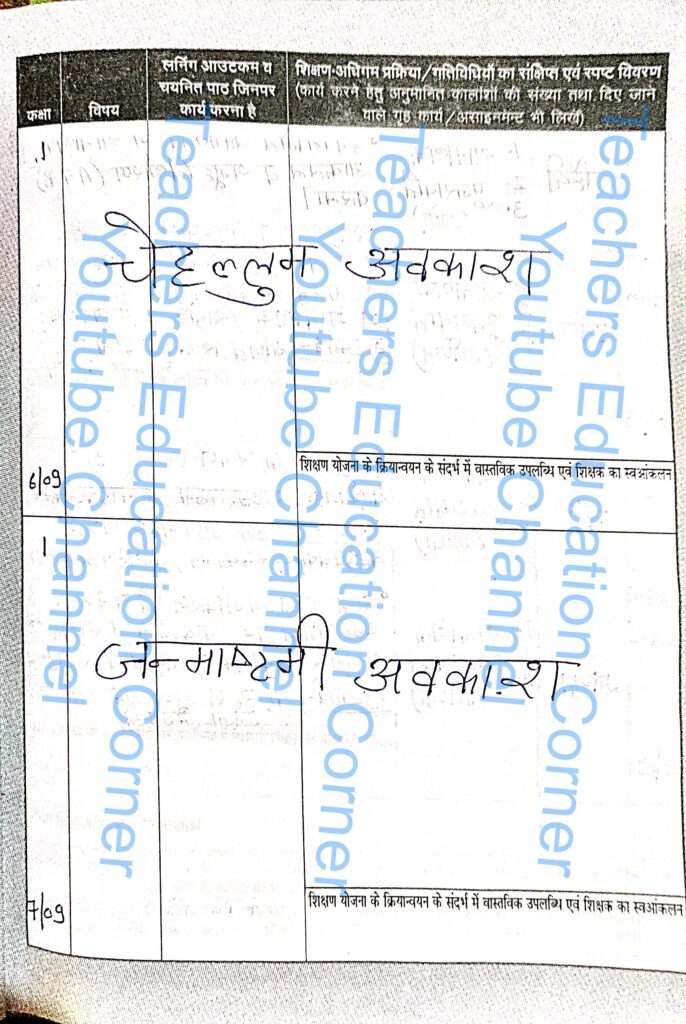 कक्षा
विषय
लर्निंग आउटकम व
चयनित पाठ जिनपर
कार्य करना है
शिक्षण-अधिगम प्रक्रिया/गतिविधियों का संक्षिप्त एवं स्पष्ट विवरण
(कार्य करने हेतु अनुमानित कालांशों की संख्या तथा दिए जाने
वाले गृह कार्य/असाइनमेन्ट भी लिखें)
1.
चेहल्लुम अवकाश
शिक्षण योजना के क्रियान्वयन के संदर्भ में वास्तविक उपलब्धि एवं शिक्षक का स्वआंकलन
6/09
1
जन्माष्टमी अवकाश
शिक्षण योजना के क्रियान्वयन के संदर्भ में वास्तविक उपलब्धि एवं शिक्षक का स्वआंकलन
7/09
Teachers Education Corner
Youtube Channel
Teachers Education Corner
Youtube Channel
Teachers Education Corner
Youtube Channel